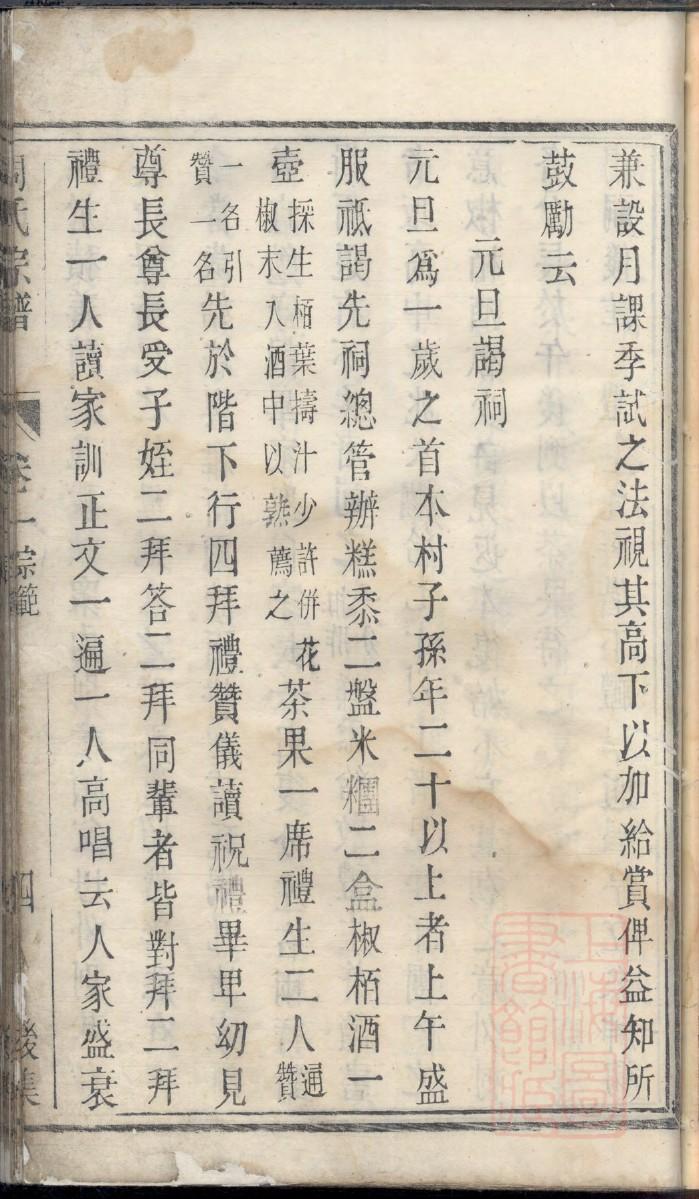 兼設月課季試之法視其高下以加給賞俾益知所
鼓勵云
元旦謁祠
元旦爲一歲之首本村子孫年二十以上者上午盛
服祗謁先祠總管辦糕黍二盤米糰二盒椒栢酒一
壺採生栢葉擣汁少許併花椒末入酒中以熟薦之茶果一席禮生二人通贊
一名引贊一名先於階下行四拜禮贊儀讀祝禮畢卑幼見
尊長尊長受子姪二拜答二拜同輩者皆對拜二拜
禮生一人讀家訓正文一遍一人高唱云人家盛衰
氏宗譜 卷一 宗範 四